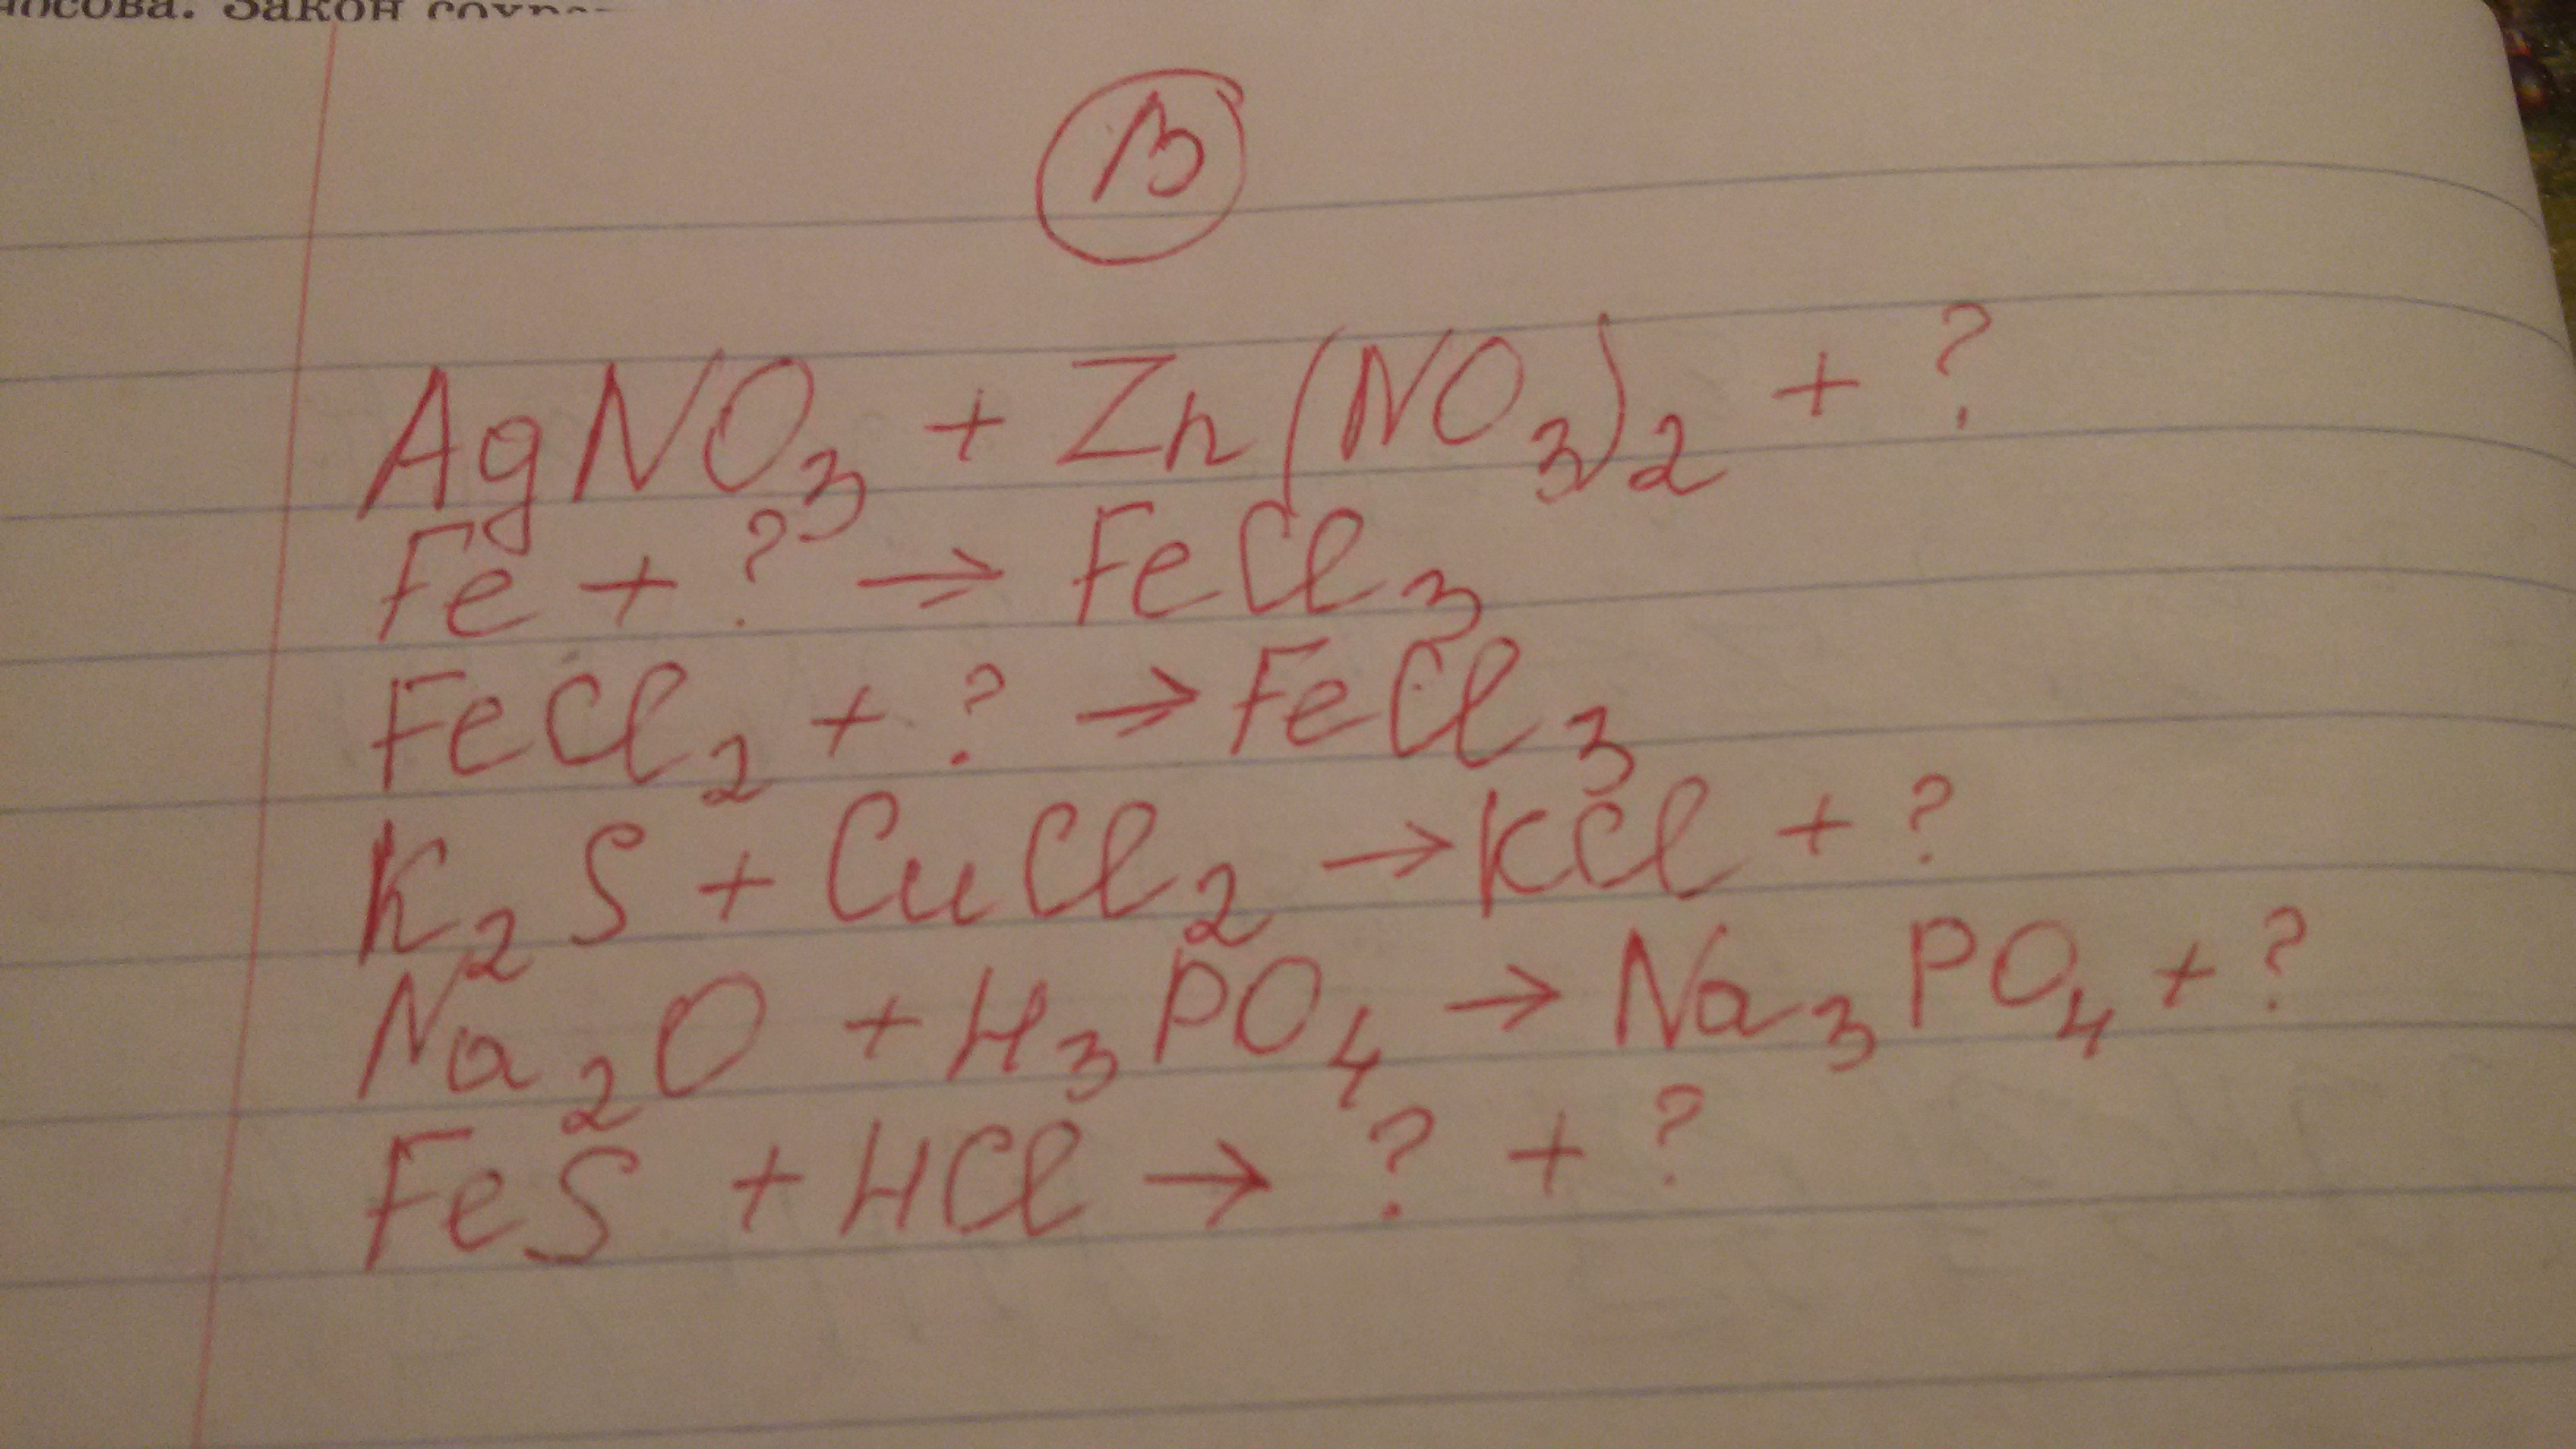 Закон
В
AgNO₃ + Zn(NO₃)₂ + ?
Fe + ? → FeCl₃
FeCl₂ + ? → FeCl₃
K₂S + CuCl₂ → KCl + ?
Na₂O + H₃PO₄ → Na₃PO₄ + ?
FeS + HCl → ? + ?